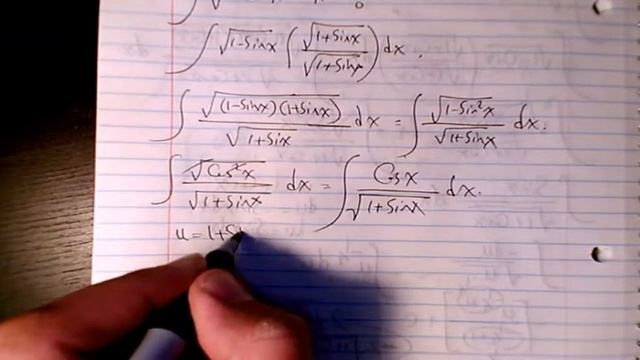 ∫ √(1-Sinx) (√(1+Sinx) / √(1+Sinx)) dx.
∫ √((1-Sinx)(1+Sinx)) / √(1+Sinx) dx = ∫ √(1-Sin²x) / √(1+Sinx) dx.
∫ √(Cos²x) / √(1+Sinx) dx = ∫ Cosx / √(1+Sinx) dx.
u = 1+Si